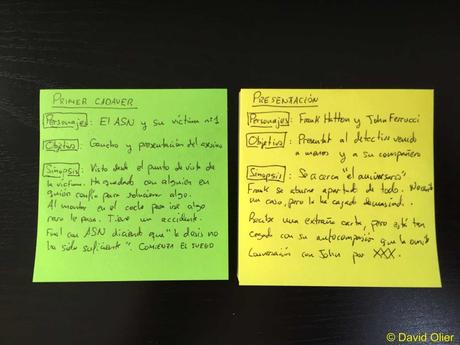 PRIMER CADAVER
Personajes: El ASN y su víctima nº1
Objetivo: Gancho y presentación del asesino
Sinopsis: Visto desde el punto de vista de
la víctima. Ha quedado con alguien en
quién confía para solucionar algo.
Al montar en el coche por ise algo
raro le pasa. Tiene un accidente.
Final con ASN diciendo que "la dosis no
ha sido suficiente". COMIENZA EL JUEGO
PRESENTACIÓN
Personajes: Frank Hatton y John Ferrucci
Objetivo: Presentar al detective venido
a menos y a su compañero
Sinopsis: Se acerca "el aniversario"
Frank se aburre apartado de todo. Necesita
un caso, pero le ha cagado demasiado.
Recibe una extraña carta, pero está tan
cegado con su autocompasión que la omite
Conversación con John por XXX.
© David Olier